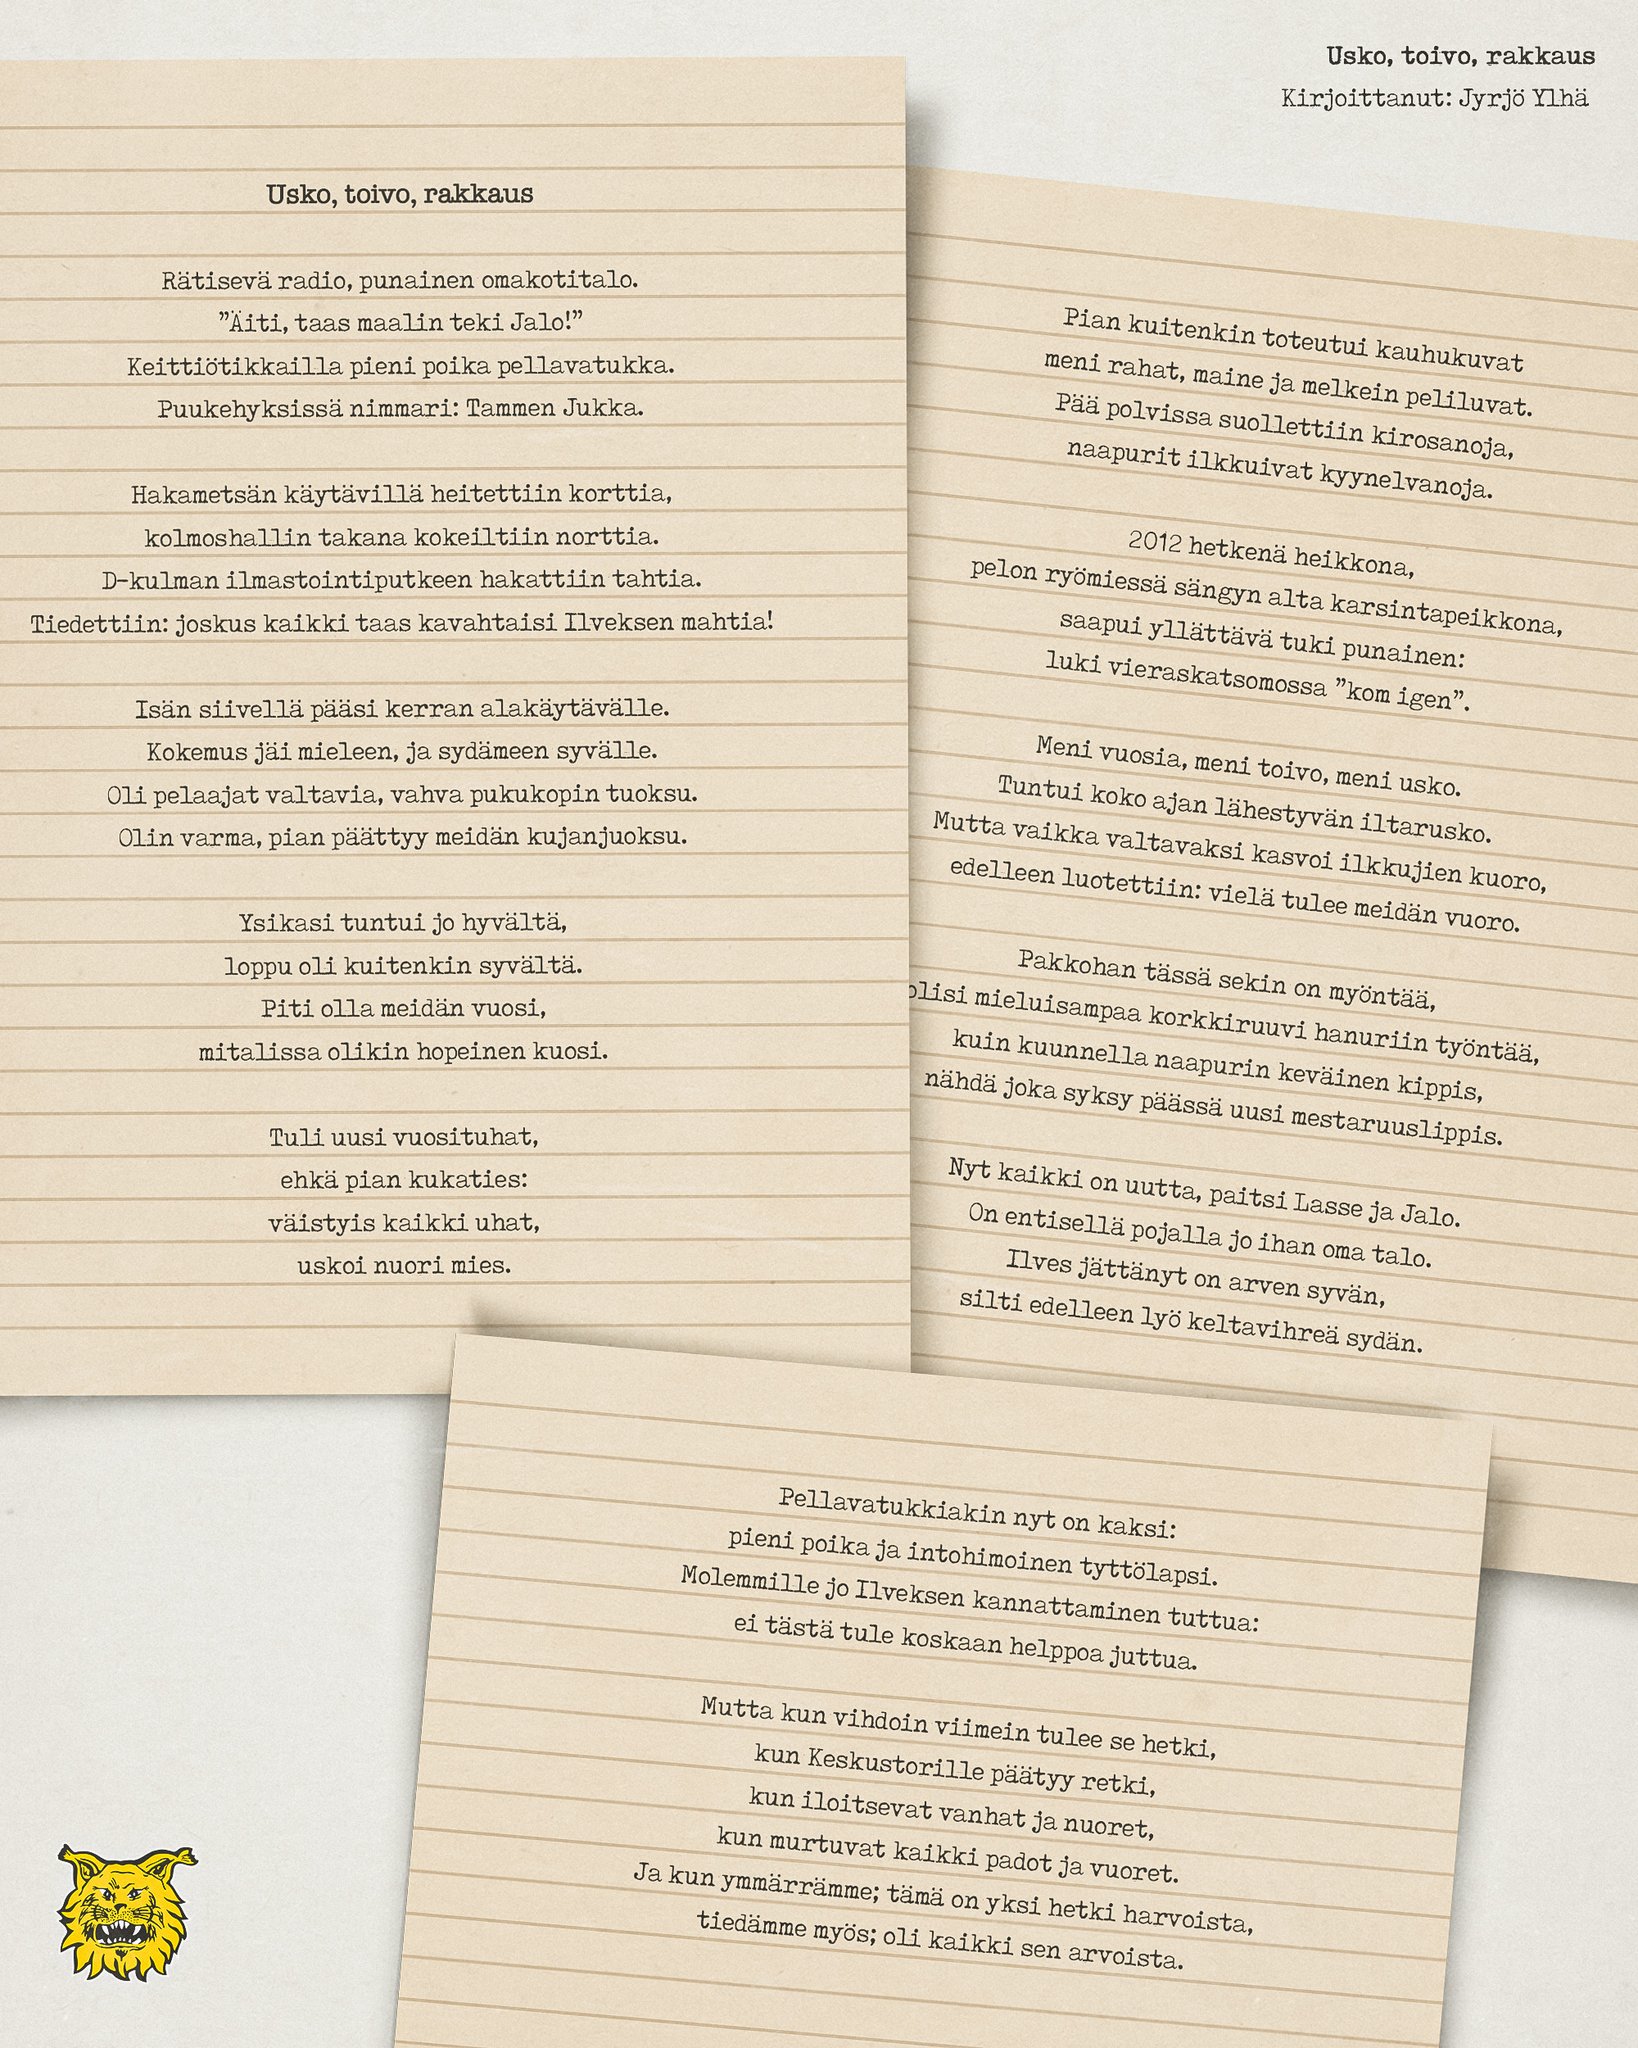 Usko, toivo, rakkaus
Kirjoittanut: Jyrjö Ylhä
Usko, toivo, rakkaus
Rätisevä radio, punainen omakotitalo.
”Äiti, taas maalin teki Jalo!”
Keittiötikkailla pieni poika pellavatukka.
Puukehyksissä nimmari: Tammen Jukka.
Hakametsän käytävillä heitettiin korttia,
kolmoshallin takana kokeiltiin norttia.
D-kulman ilmastointiputkeen hakattiin tahtia.
Tiedettiin: joskus kaikki taas kavahtaisi Ilveksen mahtia!
Isän siivellä pääsi kerran alakäytävälle.
Kokemus jäi mieleen, ja sydämeen syvälle.
Oli pelaajat valtavia, vahva pukukopin tuoksu.
Olin varma, pian päättyy meidän kujanjuoksu.
Ysikasi tuntui jo hyvältä,
loppu oli kuitenkin syvältä.
Piti olla meidän vuosi,
mitalissa olikin hopeinen kuosi.
Tuli uusi vuosituhat,
ehkä pian kukaties:
väistyis kaikki uhat,
uskoi nuori mies.
Pian kuitenkin toteutui kauhukuvat
meni rahat, maine ja melkein peliluvat.
Pää polvissa suollettiin kirosanoja,
naapurit ilkkuivat kyynelvanoja.
2012 hetkenä heikkona,
pelon ryömiessä sängyn alta karsintapeikkona,
saapui yllättävä tuki punainen:
luki vieraskatsomossa ”kom igen”.
Meni vuosia, meni toivo, meni usko.
Tuntui koko ajan lähestyvän iltarusko.
Mutta vaikka valtavaksi kasvoi ilkkujien kuoro,
edelleen luotettiin: vielä tulee meidän vuoro.
Pakkohan tässä sekin on myöntää,
olisi mieluisampaa korkkiruuvi hanuriin työntää,
kuin kuunnella naapurin keväinen kippis,
nähdä joka syksy päässä uusi mestaruuslippis.
Nyt kaikki on uutta, paitsi Lasse ja Jalo.
On entisellä pojalla jo ihan oma talo.
Ilves jättänyt on arven syvän,
silti edelleen lyö keltavihreä sydän.
Pellavatukkiakin nyt on kaksi:
pieni poika ja intohimoinen tyttölapsi.
Molemmille jo Ilveksen kannattaminen tuttua:
ei tästä tule koskaan helppoa juttua.
Mutta kun vihdoin viimein tulee se hetki,
kun Keskustorille päätyy retki,
kun iloitsevat vanhat ja nuoret,
kun murtuvat kaikki padot ja vuoret.
Ja kun ymmärrämme; tämä on yksi hetki harvoista,
tiedämme myös; oli kaikki sen arvoista.